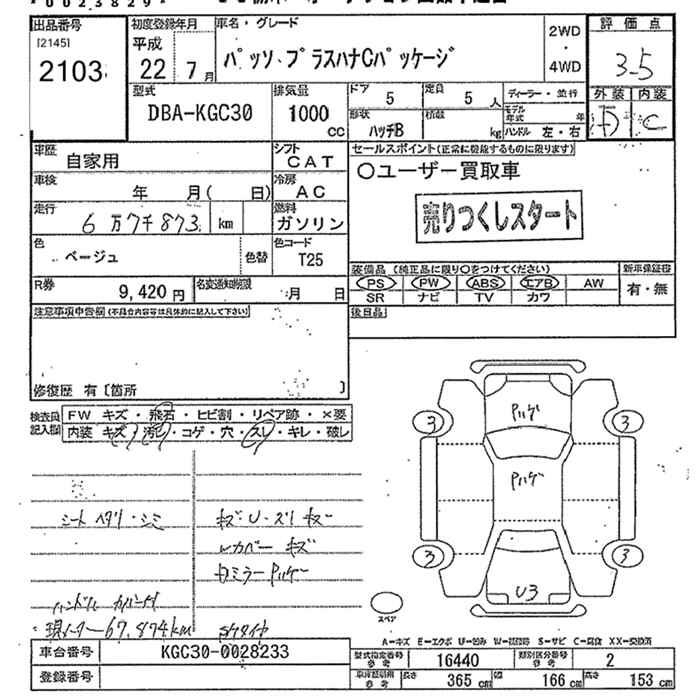 出品番号 初度登録年月 車名・グレード 2WD・4WD 評価点
[2145]
2103 平成 22年 7月 パッソ プラスハナCパッケージ 3-5
型式 排気量 ドア 5 定員 5人 ディーラー・並行 外装 内装
DBA-KGC30 1000cc モデル年式 年 C
形状 ハッチB 積載 kg ハンドル 左・右
車歴 自家用 シフト CAT セールスポイント(正常に機能するものに限ります)
車検 年 月( 日) 冷房 AC 〇ユーザー買取車
走行 6万7千873 km 燃料 ガソリン 売りつくしスタート
色 ベージュ 色替 色コード T25
装備品 (純正品に限り〇をつけてください) 新車保証書
PS PW ABS エアB AW 有・無
SR ナビ TV カワ
R券 9,420円 名変通知期限 月 日
注意事項申告欄(不具合内容等は具体的に記入して下さい) 後日品
修復歴 有〔箇所 〕
検査員記入欄 FW キズ・飛石・ヒビ割・リペア跡・×要
内装 キズ・汚レ・コゲ・穴・スレ・キレ・破レ
シート ヘタリ・シミ キズ・U・スリキズ
レカバー キズ
ハンドル
現メーター67,874km
3 3
3 3
U3
スペア
A-キズ E-エクボ U-凹み S-サビ C-腐食 XX-交換済
車台番号 KGC30-0028233 型式指定番号 参考 16440 類別区分番号 参考 2
登録番号 参考 長さ 365cm 幅 166cm 高さ 153cm